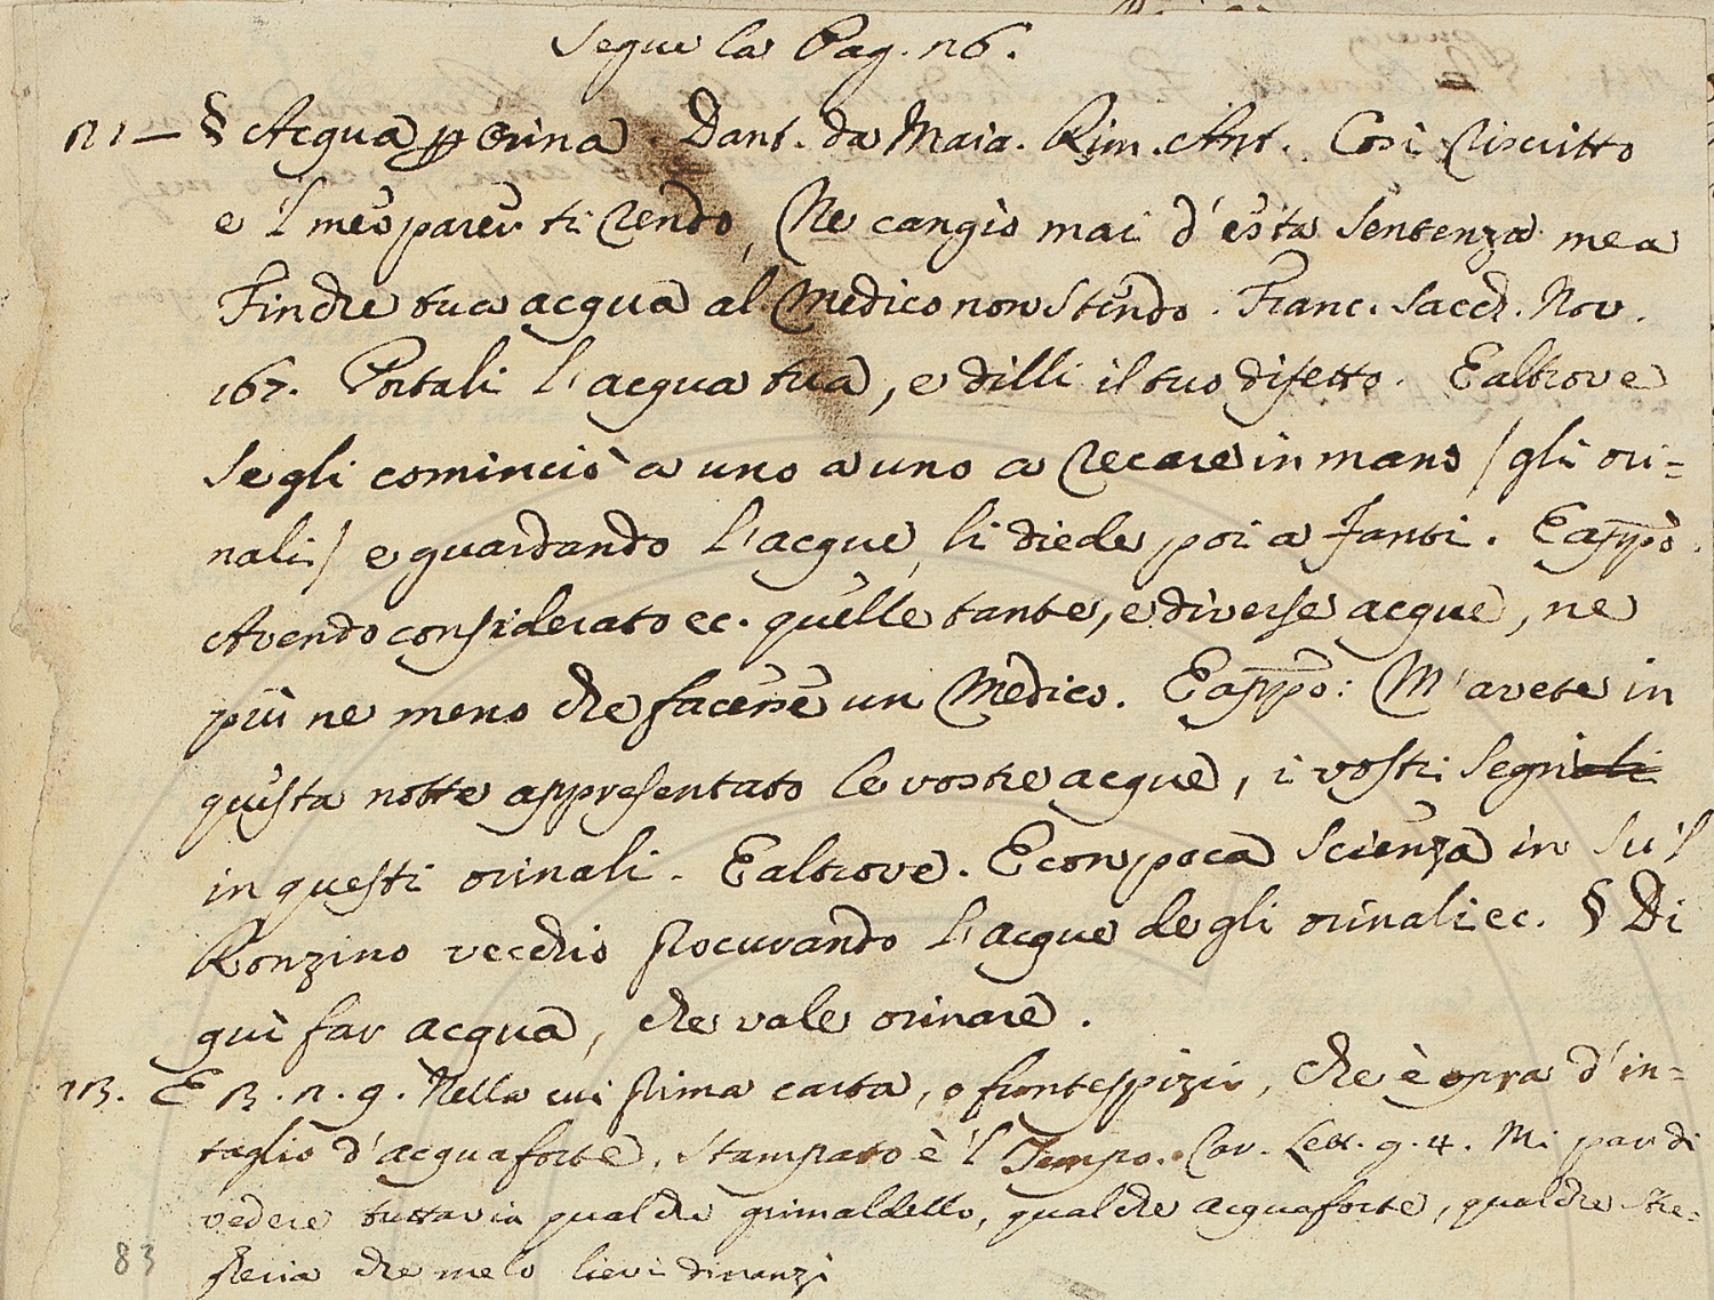 Segue la Pag. 126.
121 — § Acqua p Orina. Dant. da Maia. Rim. Ant. Così riscritto
e 'l meo parer ti rendo, Ne cangio mai d'esta sentenza mea
Finche tua acqua al Medico non stendo. Franc. Sacch. Nov.
167. Portali l'acqua tua, e dilli il tuo difetto. E altrove
Se gli cominciò a uno a uno a recare in mano / gli ori=
nali / e guardando l'acque, li diede poi a fanti. E app̄o.
Avendo considerato ec. quelle tante, e diverse acque, ne
più ne meno che facesse un Medico. E app̄o: M'avete in
questa notte appresentato le vostre acque, i vostri segni
in questi orinali. E altrove. E con poca scienza in su 'l
Ronzino vecchio procurando l'acque degli orinali ec. § Di
quì far acqua, che vale orinare.
123. E B. 2. 9. Nella cui prima carta, o frontespizio, che è opra d'in=
taglio d'acquaforte, stampato è 'l Tempo. Car. Lett. 9. 4. Mi par di
vedere tuttavia qualche grimaldello, qualche acquaforte, qualche stre=
gheria che melo lievi dinanzi
83